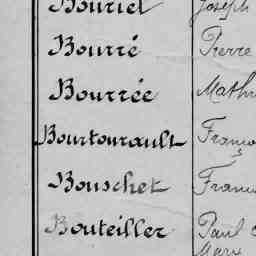 Bouriet Joseph
Bourré Pierre
Bourrée Mathu
Bourtourault Franço
Bouschet Franc
Bouteiller Paul
Marx